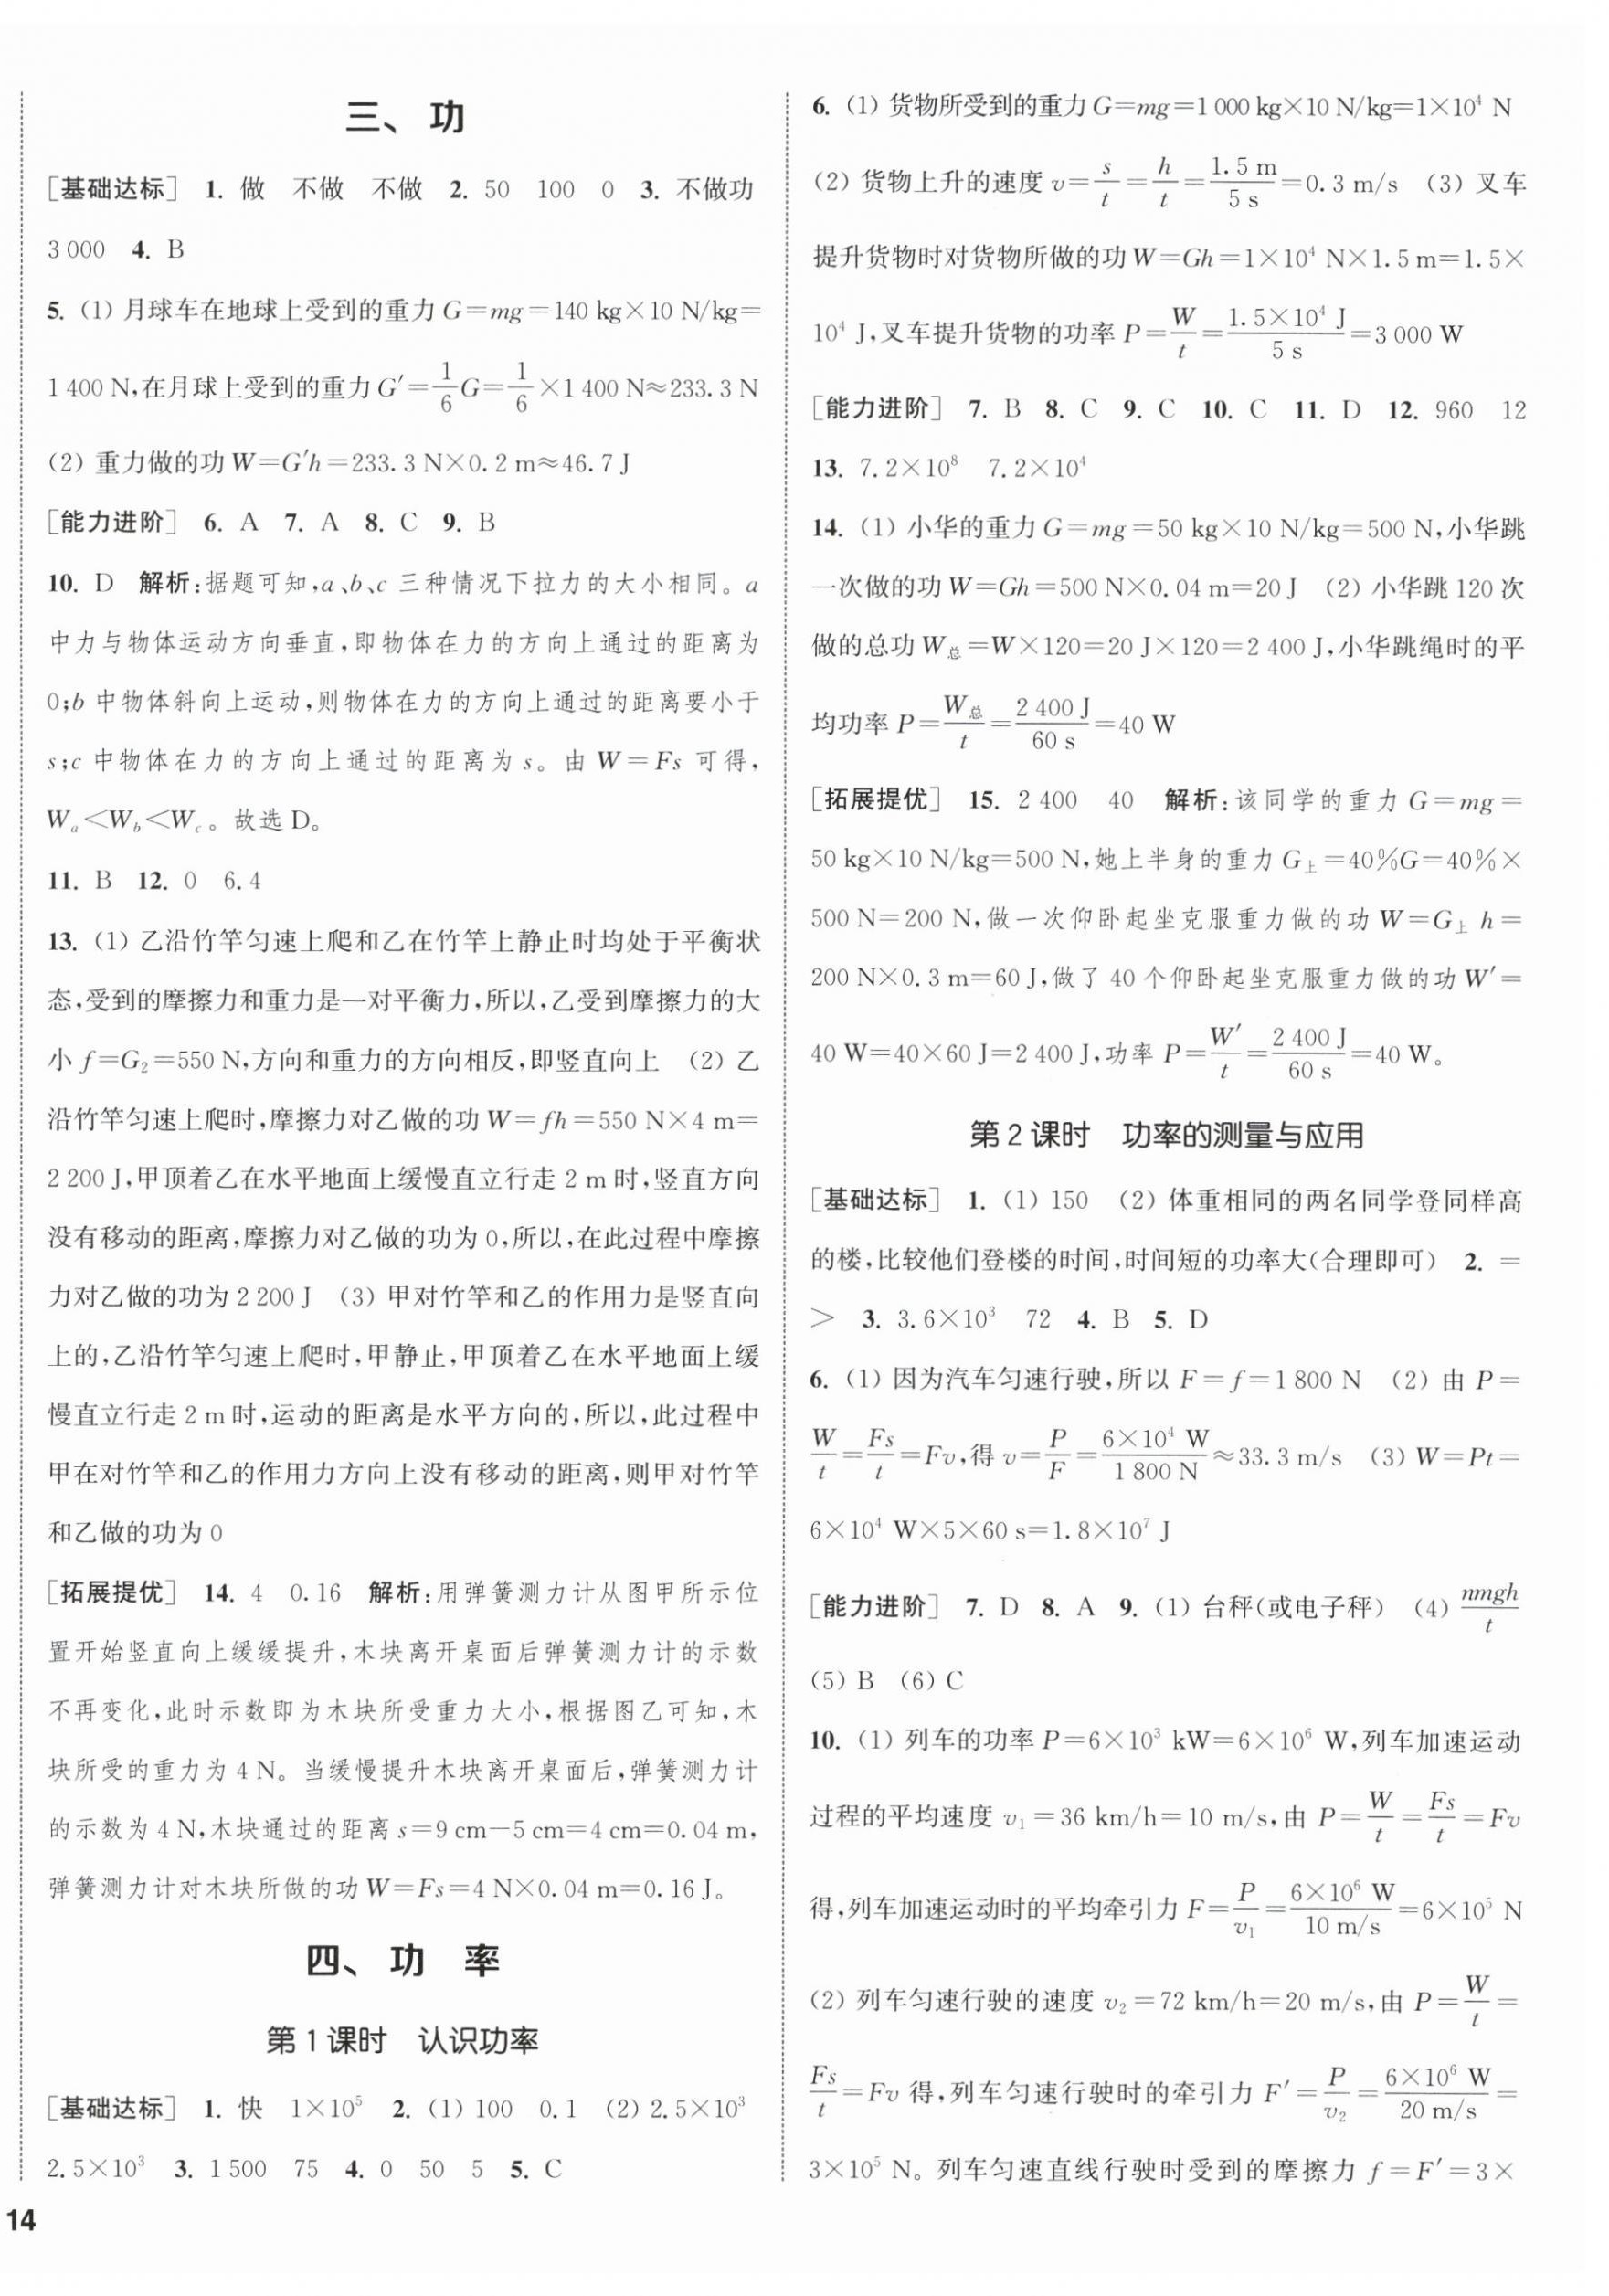 三、功
[基础达标] 1. 做 不做 不做 2. 50 100 0 3. 不做功
3 000 4. B
5. (1) 月球车在地球上受到的重力 G=mg=140 kg×10 N/kg=
1 400 N,在月球上受到的重力 G′=1/6G=1/6×1 400 N≈233.3 N
(2) 重力做的功 W=G′h=233.3 N×0.2 m≈46.7 J
[能力进阶] 6. A 7. A 8. C 9. B
10. D 解析:据题可知,a、b、c 三种情况下拉力的大小相同。a
中力与物体运动方向垂直,即物体在力的方向上通过的距离为
0;b 中物体斜向上运动,则物体在力的方向上通过的距离要小于
s;c 中物体在力的方向上通过的距离为 s。由 W=Fs 可得,
Wₐ<W_b<W_c。故选 D。
11. B 12. 0 6.4
13. (1) 乙沿竹竿匀速上爬和乙在竹竿上静止时均处于平衡状
态,受到的摩擦力和重力是一对平衡力,所以,乙受到摩擦力的大
小 f=G₂=550 N,方向和重力的方向相反,即竖直向上 (2) 乙
沿竹竿匀速上爬时,摩擦力对乙做的功 W=fh=550 N×4 m=
2 200 J,甲顶着乙在水平地面上缓慢直立行走 2 m 时,竖直方向
没有移动的距离,摩擦力对乙做的功为 0,所以,在此过程中摩擦
力对乙做的功为 2 200 J (3) 甲对竹竿和乙的作用力是竖直向
上的,乙沿竹竿匀速上爬时,甲静止,甲顶着乙在水平地面上缓
慢直立行走 2 m 时,运动的距离是水平方向的,所以,此过程中
甲在对竹竿和乙的作用力方向上没有移动的距离,则甲对竹竿
和乙做的功为 0
[拓展提优] 14. 4 0.16 解析:用弹簧测力计从图甲所示位
置开始竖直向上缓缓提升,木块离开桌面后弹簧测力计的示数
不再变化,此时示数即为木块所受重力大小,根据图乙可知,木
块所受的重力为 4 N。当缓慢提升木块离开桌面后,弹簧测力计
的示数为 4 N,木块通过的距离 s=9 cm-5 cm=4 cm=0.04 m,
弹簧测力计对木块所做的功 W=Fs=4 N×0.04 m=0.16 J。
四、功 率
第 1 课时 认识功率
[基础达标] 1. 快 1×10⁵ 2. (1) 100 0.1 (2) 2.5×10³
2.5×10³ 3. 1 500 75 4. 0 50 5 5. C
14
6. (1) 货物所受到的重力 G=mg=1 000 kg×10 N/kg=1×10⁴ N
(2) 货物上升的速度 v=s/t=h/t=1.5 m/5 s=0.3 m/s (3) 叉车
提升货物时对货物所做的功 W=Gh=1×10⁴ N×1.5 m=1.5×
10⁴ J,叉车提升货物的功率 P=W/t=1.5×10⁴ J/5 s=3 000 W
[能力进阶] 7. B 8. C 9. C 10. C 11. D 12. 960 12
13. 7.2×10⁸ 7.2×10⁴
14. (1) 小华的重力 G=mg=50 kg×10 N/kg=500 N,小华跳
一次做的功 W=Gh=500 N×0.04 m=20 J (2) 小华跳 120 次
做的总功 W总=W×120=20 J×120=2 400 J,小华跳绳时的平
均功率 P=W总/t=2 400 J/60 s=40 W
[拓展提优] 15. 2 400 40 解析:该同学的重力 G=mg=
50 kg×10 N/kg=500 N,她上半身的重力 G上=40%G=40%×
500 N=200 N,做一次仰卧起坐克服重力做的功 W=G上 h=
200 N×0.3 m=60 J,做了 40 个仰卧起坐克服重力做的功 W′=
40 W=40×60 J=2 400 J,功率 P=W′/t=2 400 J/60 s=40 W。
第 2 课时 功率的测量与应用
[基础达标] 1. (1) 150 (2) 体重相同的两名同学登同样高
的楼,比较他们登楼的时间,时间短的功率大(合理即可) 2. =
> 3. 3.6×10³ 72 4. B 5. D
6. (1) 因为汽车匀速行驶,所以 F=f=1 800 N (2) 由 P=
W/t=Fs/t=Fv,得 v=P/F=6×10⁴ W/1 800 N≈33.3 m/s (3) W=Pt=
6×10⁴ W×5×60 s=1.8×10⁷ J
[能力进阶] 7. D 8. A 9. (1) 台秤(或电子秤) (4) nmgh/t
(5) B (6) C
10. (1) 列车的功率 P=6×10³ kW=6×10⁶ W,列车加速运动
过程的平均速度 v₁=36 km/h=10 m/s,由 P=W/t=Fs/t=Fv
得,列车加速运动时的平均牵引力 F=P/v₁=6×10⁶ W/10 m/s=6×10⁵ N
(2) 列车匀速行驶的速度 v₂=72 km/h=20 m/s,由 P=W/t=
Fs/t=Fv 得,列车匀速行驶时的牵引力 F′=P/v₂=6×10⁶ W/20 m/s=
3×10⁵ N。列车匀速直线行驶时受到的摩擦力 f=F′=3×